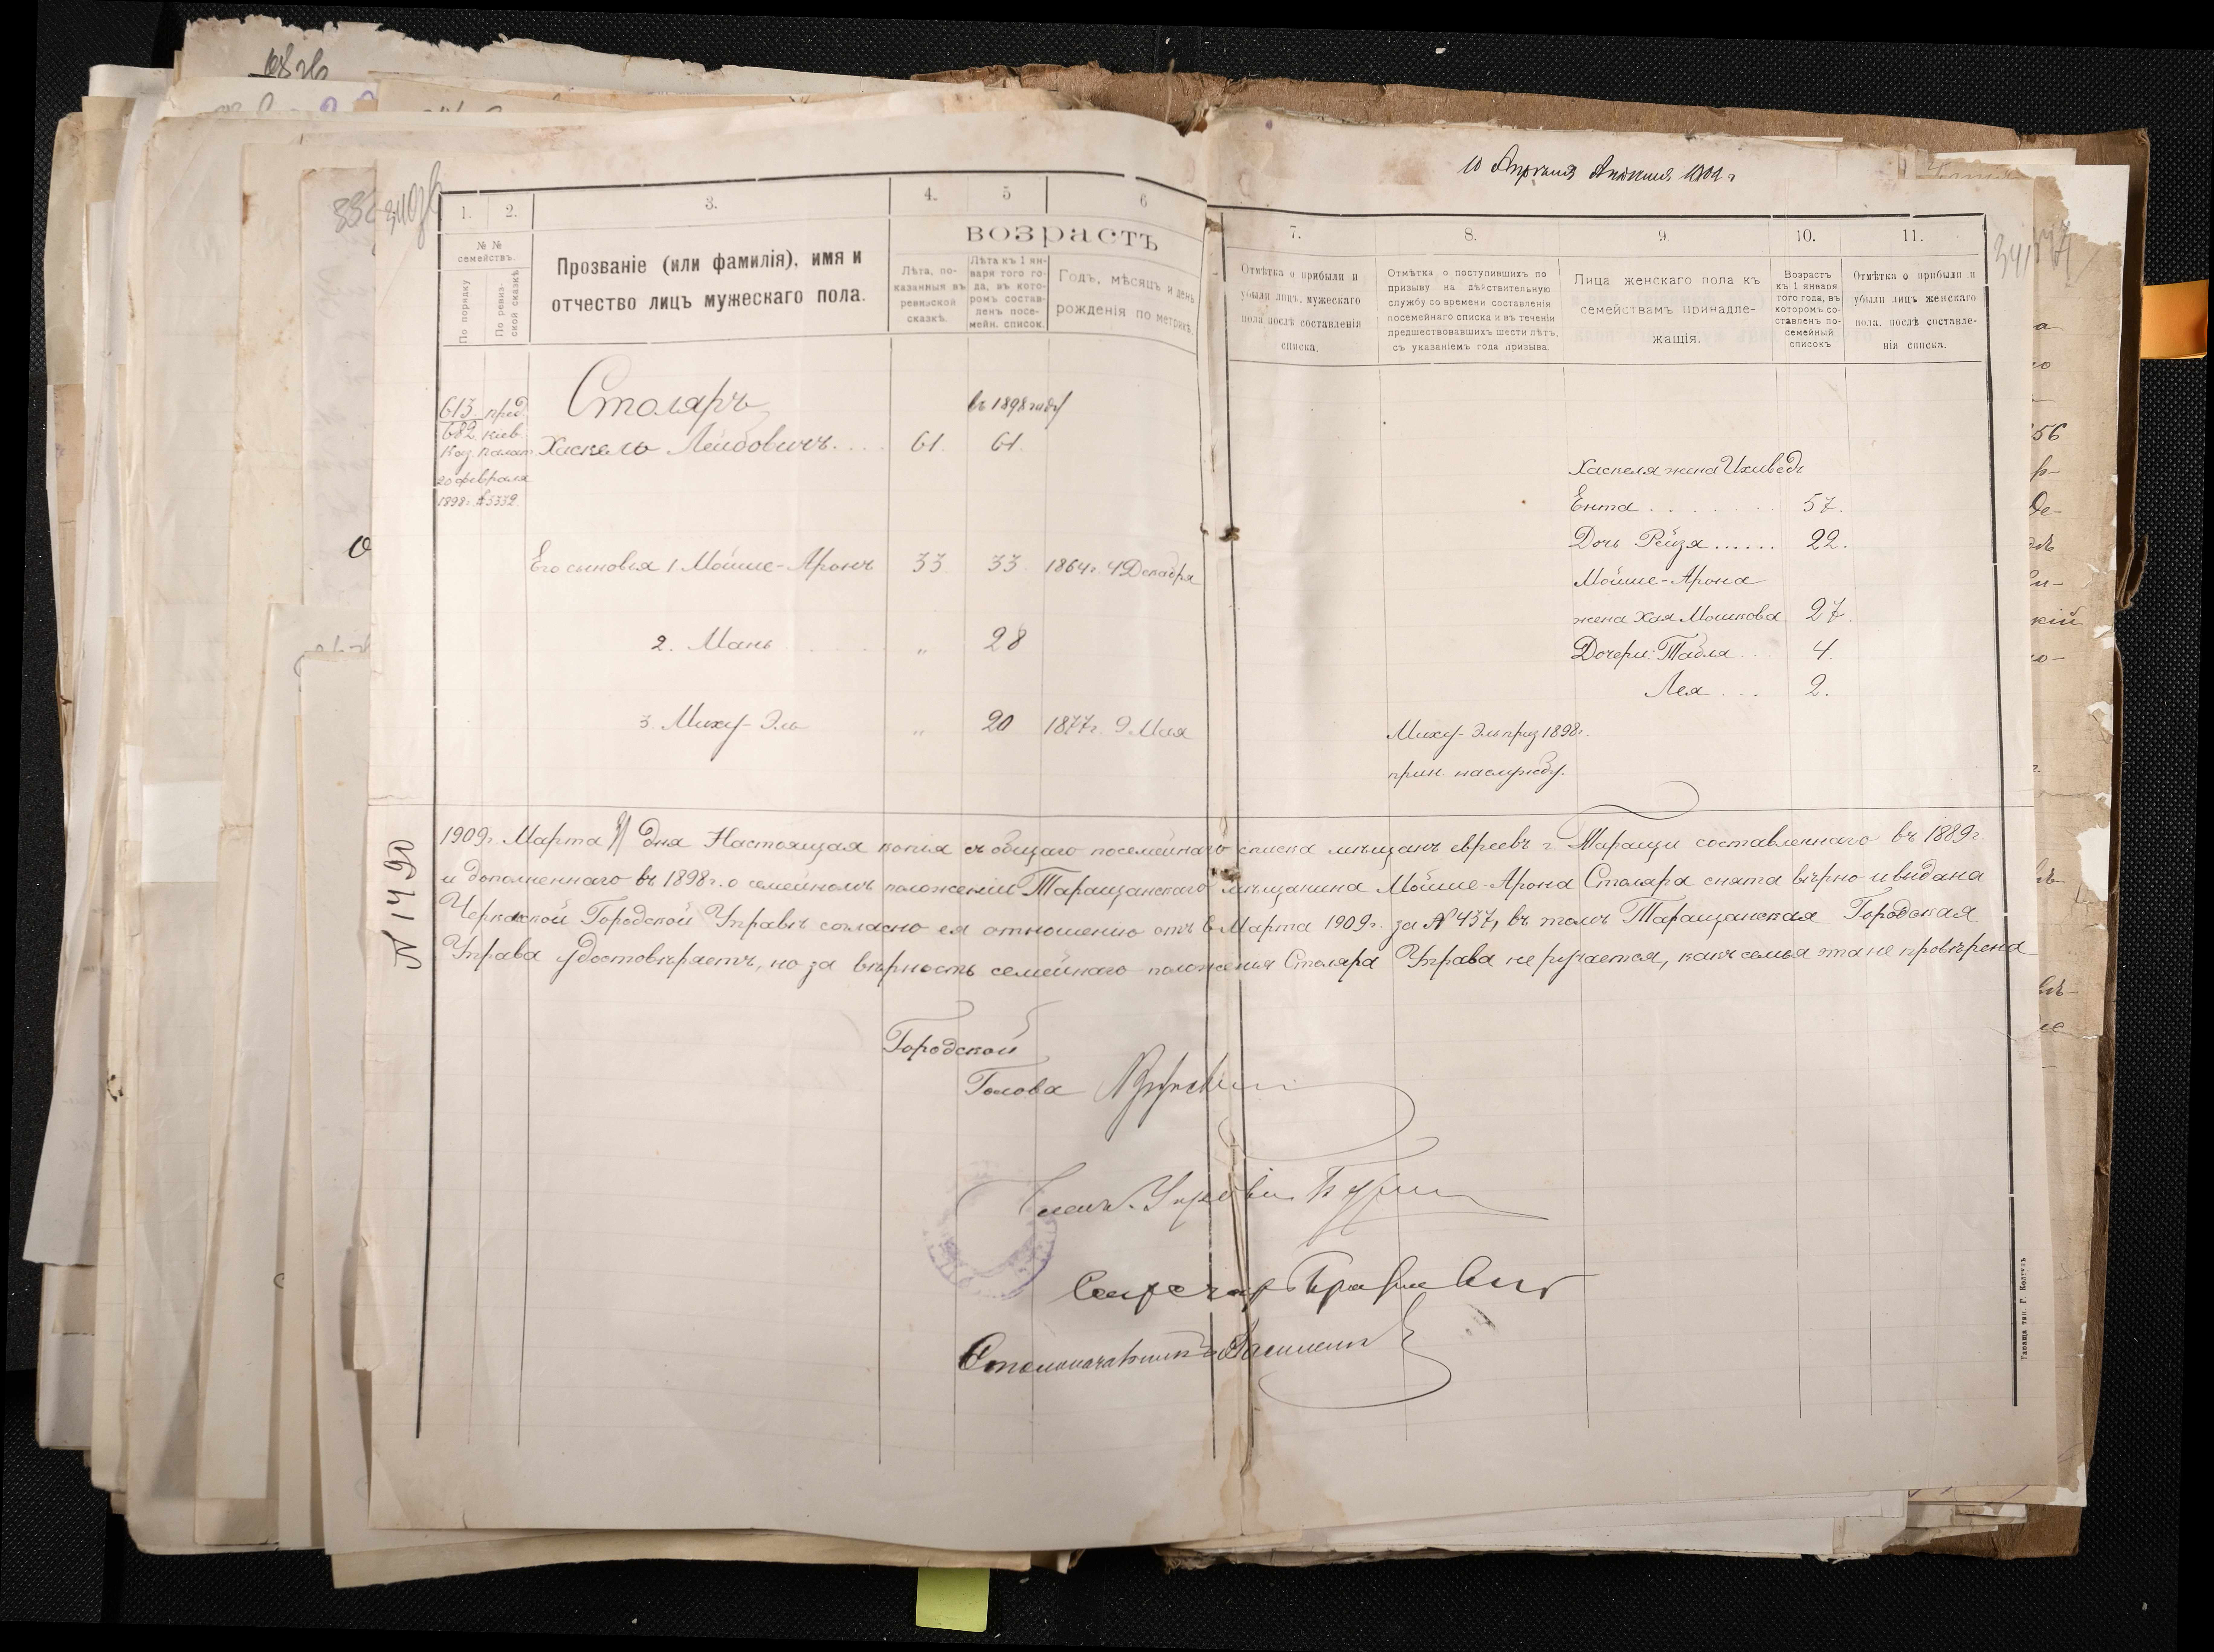 1.
2.
3.
4.
5
6
№ №
семействъ.
По порядку
По ревиз-
ской сказкѣ
Прозваніе (или фамилія), имя и
отчество лицъ мужескаго пола.
возрастъ
Лѣта, по-
казанныя въ
ревизской
сказкѣ.
Лѣта къ 1 ян-
варя того го-
да, въ кото-
ромъ состав-
ленъ посе-
мейн. список.
Годъ, мѣсяцъ и день
рожденія по метрикѣ.
613 пред.
682 кіев.
Каз. Палат.
20 февраля
1898 г. № 3332
Столяръ
въ 1898 году
Хаскель Лейбовичъ.... 61. 61.
Его сыновья 1 Мойше-Аронъ 33 33. 1864 г. 4 Декабря
2. Мань „ 28
3. Миху-Эль „ 20 1877 г. 9 Мая
10
7.
8.
9.
10.
11.
Отмѣтка о прибыли и
убыли лицъ, мужескаго
пола послѣ составленія
списка.
Отмѣтка о поступившихъ по
призыву на дѣйствительную
службу со времени составленія
посемейнаго списка и въ теченіи
предшествовавшихъ шести лѣтъ,
съ указаніемъ года призыва.
Лица женскаго пола къ
семействамъ принадле-
жащія.
Возрастъ
къ 1 января
того года, въ
которомъ со-
ставленъ по-
семейный
списокъ
Отмѣтка о прибыли и
убыли лицъ женскаго
пола, послѣ составле-
нія списка.
Хаскеля жена Ихиведъ
Ента 57.
Дочь Рейзя...... 22.
Мойше-Арона
жена Хая Мошкова 27.
Дочери: Табля 4.
Лея 2.
Миху-Эль приз 1898 г.
прин. на службу.
№ 1490
1909 г. Марта 31 дня Настоящая копія съ общаго посемейнаго списка мѣщанъ евреевъ г. Таращи составленнаго въ 1889 г.
и дополненнаго въ 1898 г. о семейномъ положеніи Таращанскаго мѣщанина Мойше-Арона Столяра снята вѣрно и выдана
Черкасской Городской Управѣ согласно ея отношенію отъ 6 Марта 1909 г. за № 437, въ томъ Таращанская Городская
Управа удостовѣряетъ, но за вѣрность семейнаго положенія Столяра Управа не ручается, какъ семья эта не провѣрена
Городской
Голова
Членъ Управы
Секретарь
Столоначальникъ
Тараща тип. Г. Колтунъ